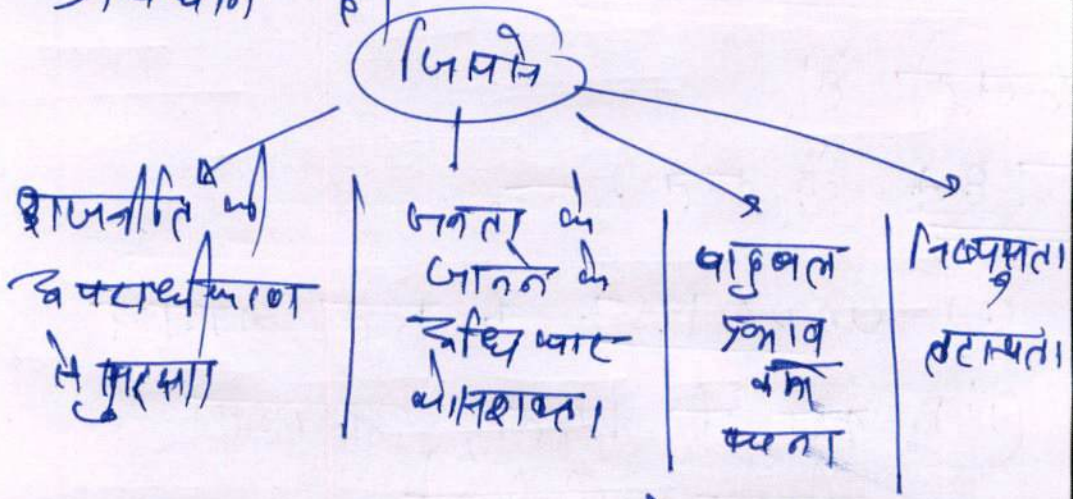 जिससे
राजनीति को
अपराधीकरण
से सुरक्षा
जनता के
जानने के
अधिकार
को सशक्त।
बाहुबल
प्रभाव
कम
करना
निष्पक्षता
तटस्थता।